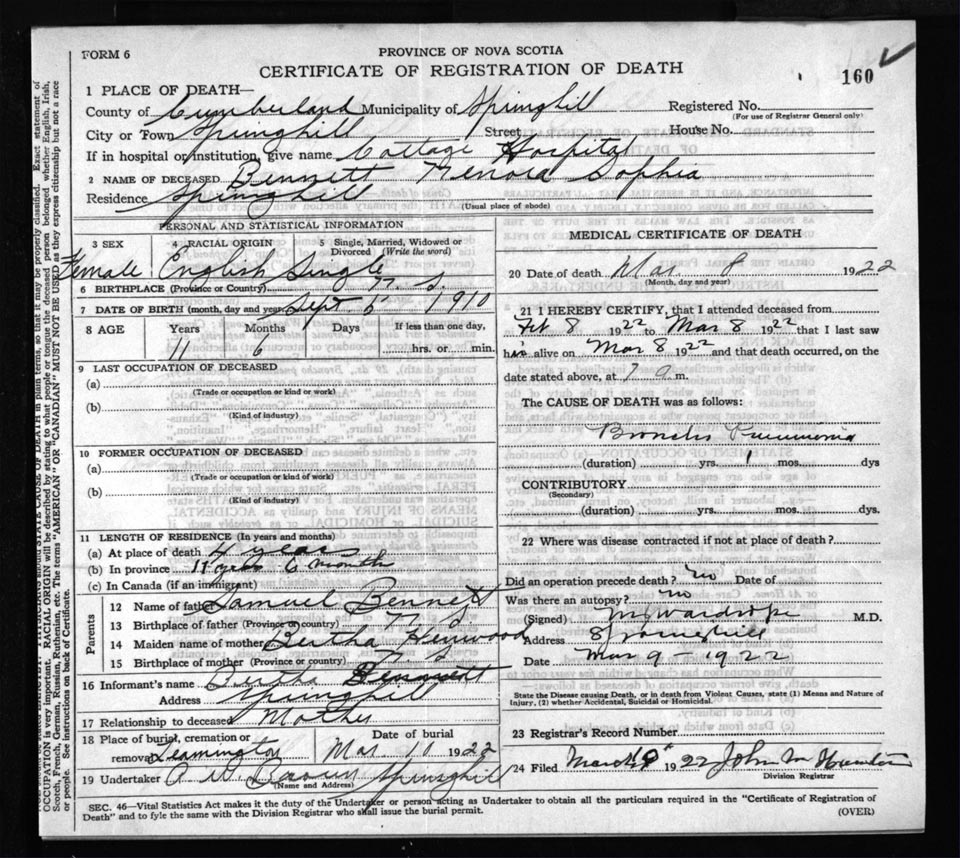 FORM 6
PROVINCE OF NOVA SCOTIA
CERTIFICATE OF REGISTRATION OF DEATH
160
1 PLACE OF DEATH—
County of Cumberland Municipality of Springhill Registered No.
(For use of Registrar General only)
City or Town Springhill Street House No.
If in hospital or institution, give name Cottage Hospital
2 NAME OF DECEASED Bennett Sophia
Residence Springhill
(Usual place of abode)
PERSONAL AND STATISTICAL INFORMATION
3 SEX 4 RACIAL ORIGIN 5 Single, Married, Widowed or Divorced (Write the word)
Female English Single
6 BIRTHPLACE (Province or Country) N. S.
7 DATE OF BIRTH (month, day and year) Sept 6 1910
8 AGE Years Months Days If less than one day,
11 6 hrs. or min.
9 LAST OCCUPATION OF DECEASED
(a)
(Trade or occupation or kind or work)
(b)
(Kind of industry)
10 FORMER OCCUPATION OF DECEASED
(a)
(Trade or occupation or kind or work)
(b)
(Kind of industry)
11 LENGTH OF RESIDENCE (In years and months)
(a) At place of death 4 years
(b) In province 11 years 6 month
(c) In Canada (if an immigrant)
Parents
12 Name of father Samuel Bennett
13 Birthplace of father (Province or country) N. S
14 Maiden name of mother Bertha Henwood
15 Birthplace of mother (Province or country) N. S
16 Informant's name Bertha Bennett
Address Springhill
17 Relationship to deceased Mother
18 Place of burial, cremation or removal Leamington Date of burial Mar 10 1922
19 Undertaker Brown Springhill
(Name and Address)
MEDICAL CERTIFICATE OF DEATH
20 Date of death Mar 8 1922
(Month, day and year)
21 I HEREBY CERTIFY, that I attended deceased from
Feb 8 1922 to Mar 8 1922 that I last saw
alive on Mar 8 1922 and that death occurred, on the
date stated above, at m.
The CAUSE OF DEATH was as follows:
Broncho Pneumonia
(duration) yrs. 1 mos. dys
CONTRIBUTORY
(Secondary)
(duration) yrs. mos. dys.
22 Where was disease contracted if not at place of death?
Did an operation precede death? no Date of
Was there an autopsy? no
(Signed) Wardrope M.D.
Address Springhill
Date Mar 9 - 1922
State the Disease causing Death, or in death from Violent Causes, state (1) Means and Nature of
Injury, (2) whether Accidental, Suicidal or Homicidal.
23 Registrar's Record Number
24 Filed March 9 1922 John
Division Registrar
SEC. 46—Vital Statistics Act makes it the duty of the Undertaker or person acting as Undertaker to obtain all the particulars required in the "Certificate of Registration of
Death" and to fyle the same with the Division Registrar who shall issue the burial permit.
(OVER)
OCCUPATION is very important. RACIAL ORIGIN will be described by stating to what people or tongue the deceased person belonged whether English, Irish,
Scotch, French, German, Russian, Ruthenian, etc. The terms "AMERICAN" OR "CANADIAN" MUST NOT BE USED as they express citizenship but not a race
or people. See instructions on back of Certificate.